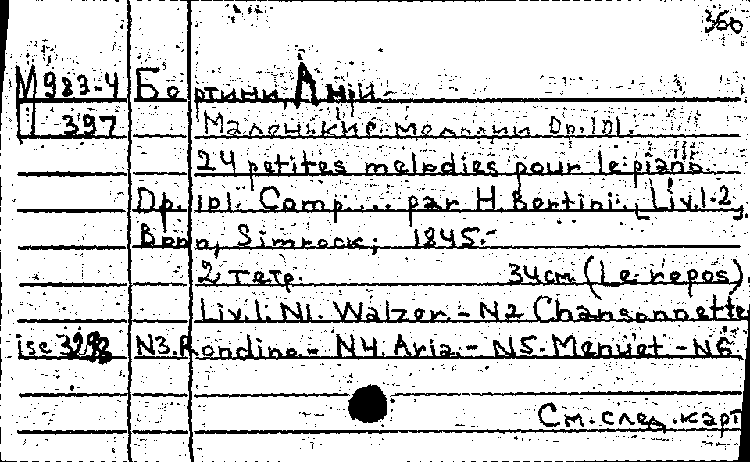 360
М 983-4 Бертини, Анри.
397 Маленькие мелодии Op. 101.
24 petites melodies pour le piano
Op. 101. Comp.... par H. Bertini. Liv. 1-2.
Bonn, Simrock, 1845.-
2 тетр. 34 см. (Le repos)
Liv. 1: N1. Walzer.- N2 Chansonnette
N3. Rondino.- N4. Aria.- N5. Menuet.- N6.
См. след. карт